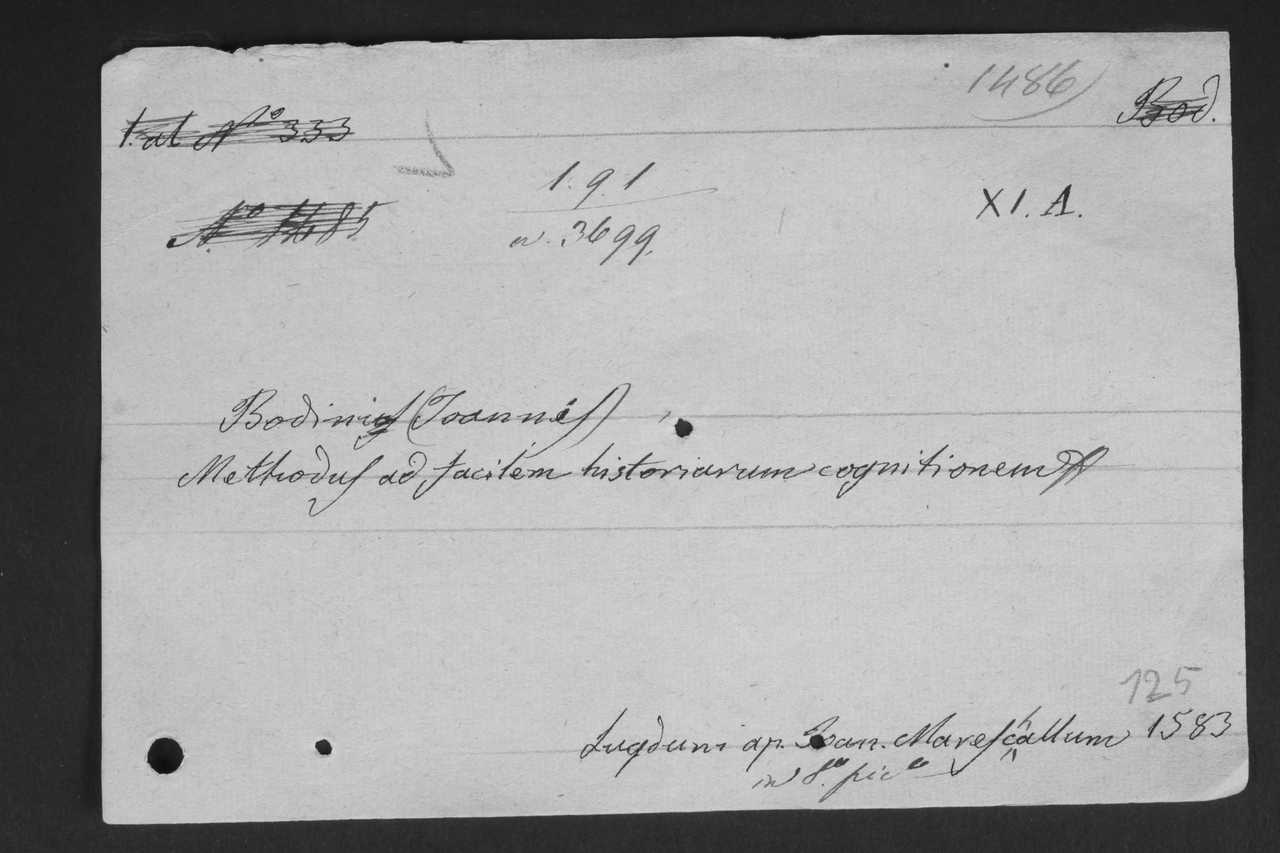 1486
Bod.
1. al Nº 333
1.9.1
XI. A.
Nº 1485
n. 3699.
Bodinus (Joannes)
Methodus ad facilem historiarum cognitionem
125
Lugduni ap. Joan. Mareschallum 1583
in 8º. picº